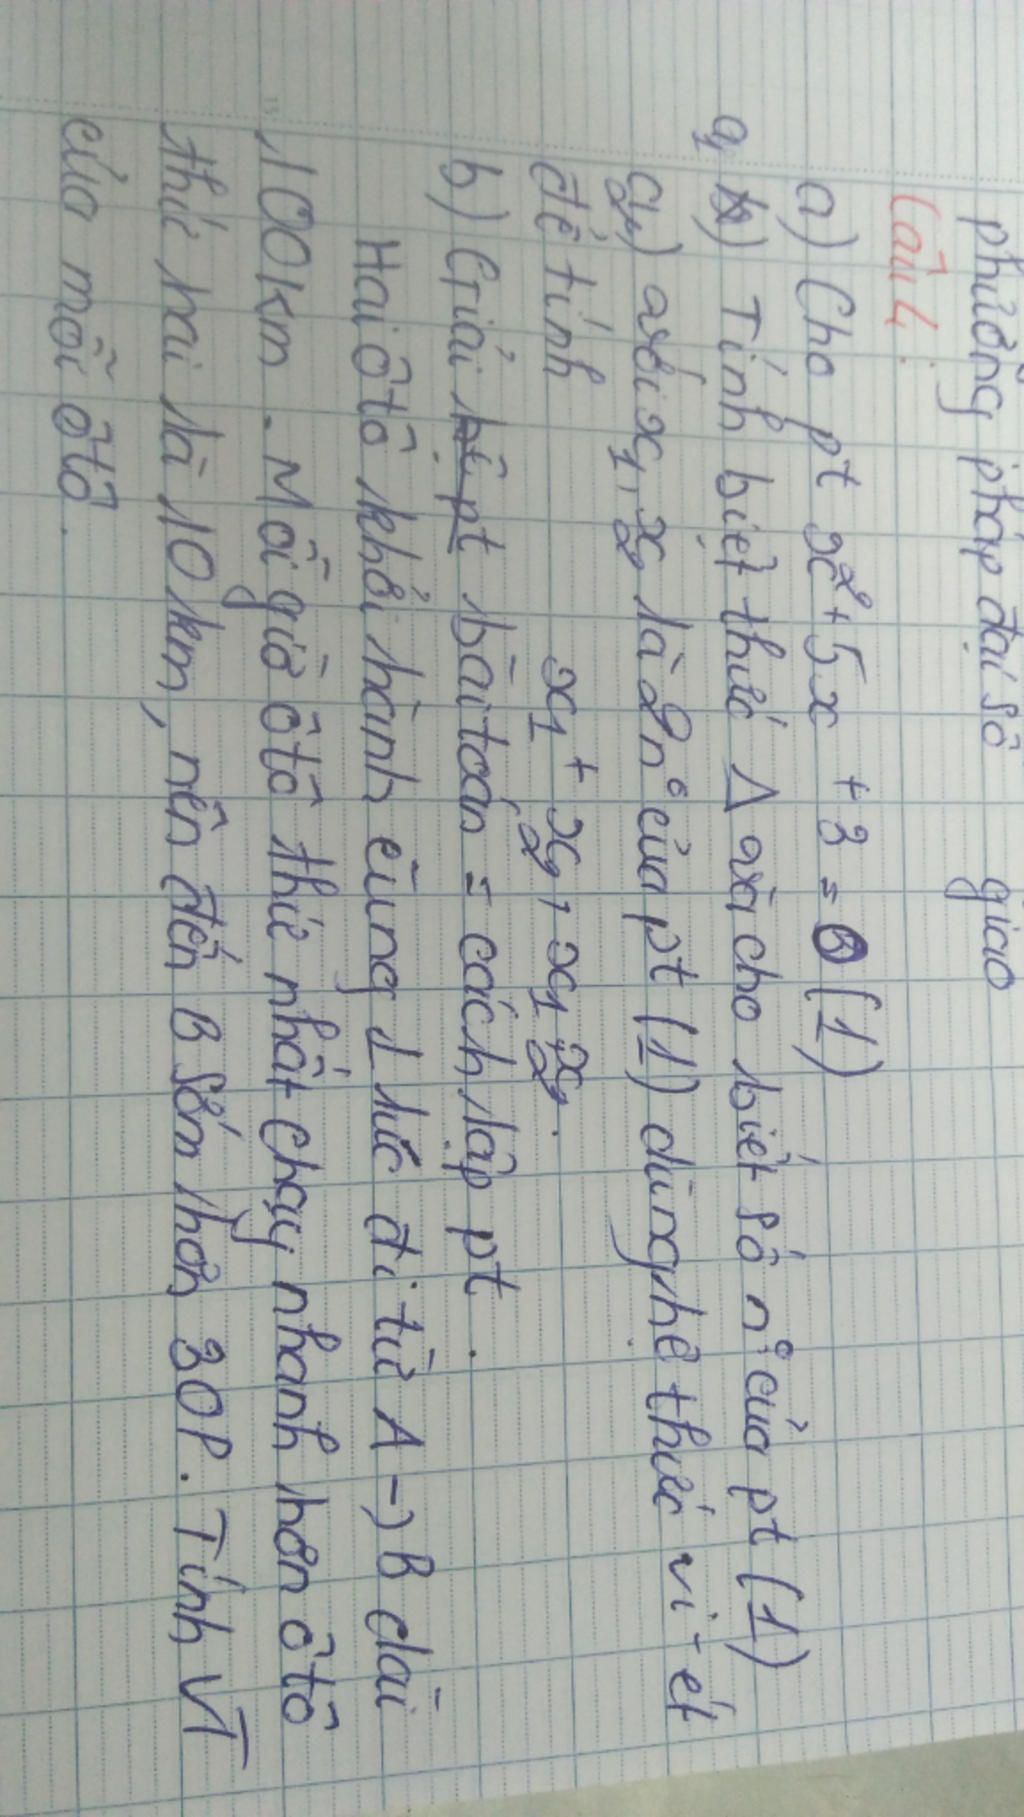 phương pháp đại số giao
Câu 4:
a) Cho pt x²+5x +3=0 (1)
a₁) Tính biệt thức Δ và cho biết số n° của pt (1)
a₂) với x₁, x₂ là 2n° của pt (1) dùng hệ thức vi-ét
để tính x₁ + x₂, x₁x₂.
b) Giải bài toán = cách lập pt.
Hai ôtô khởi hành cùng 1 lúc đi từ A → B dài
100km. Mỗi giờ ôtô thứ nhất chạy nhanh hơn ôtô
thứ hai là 10km, nên đến B sớm hơn 30P. Tính VT
của mỗi ôtô.